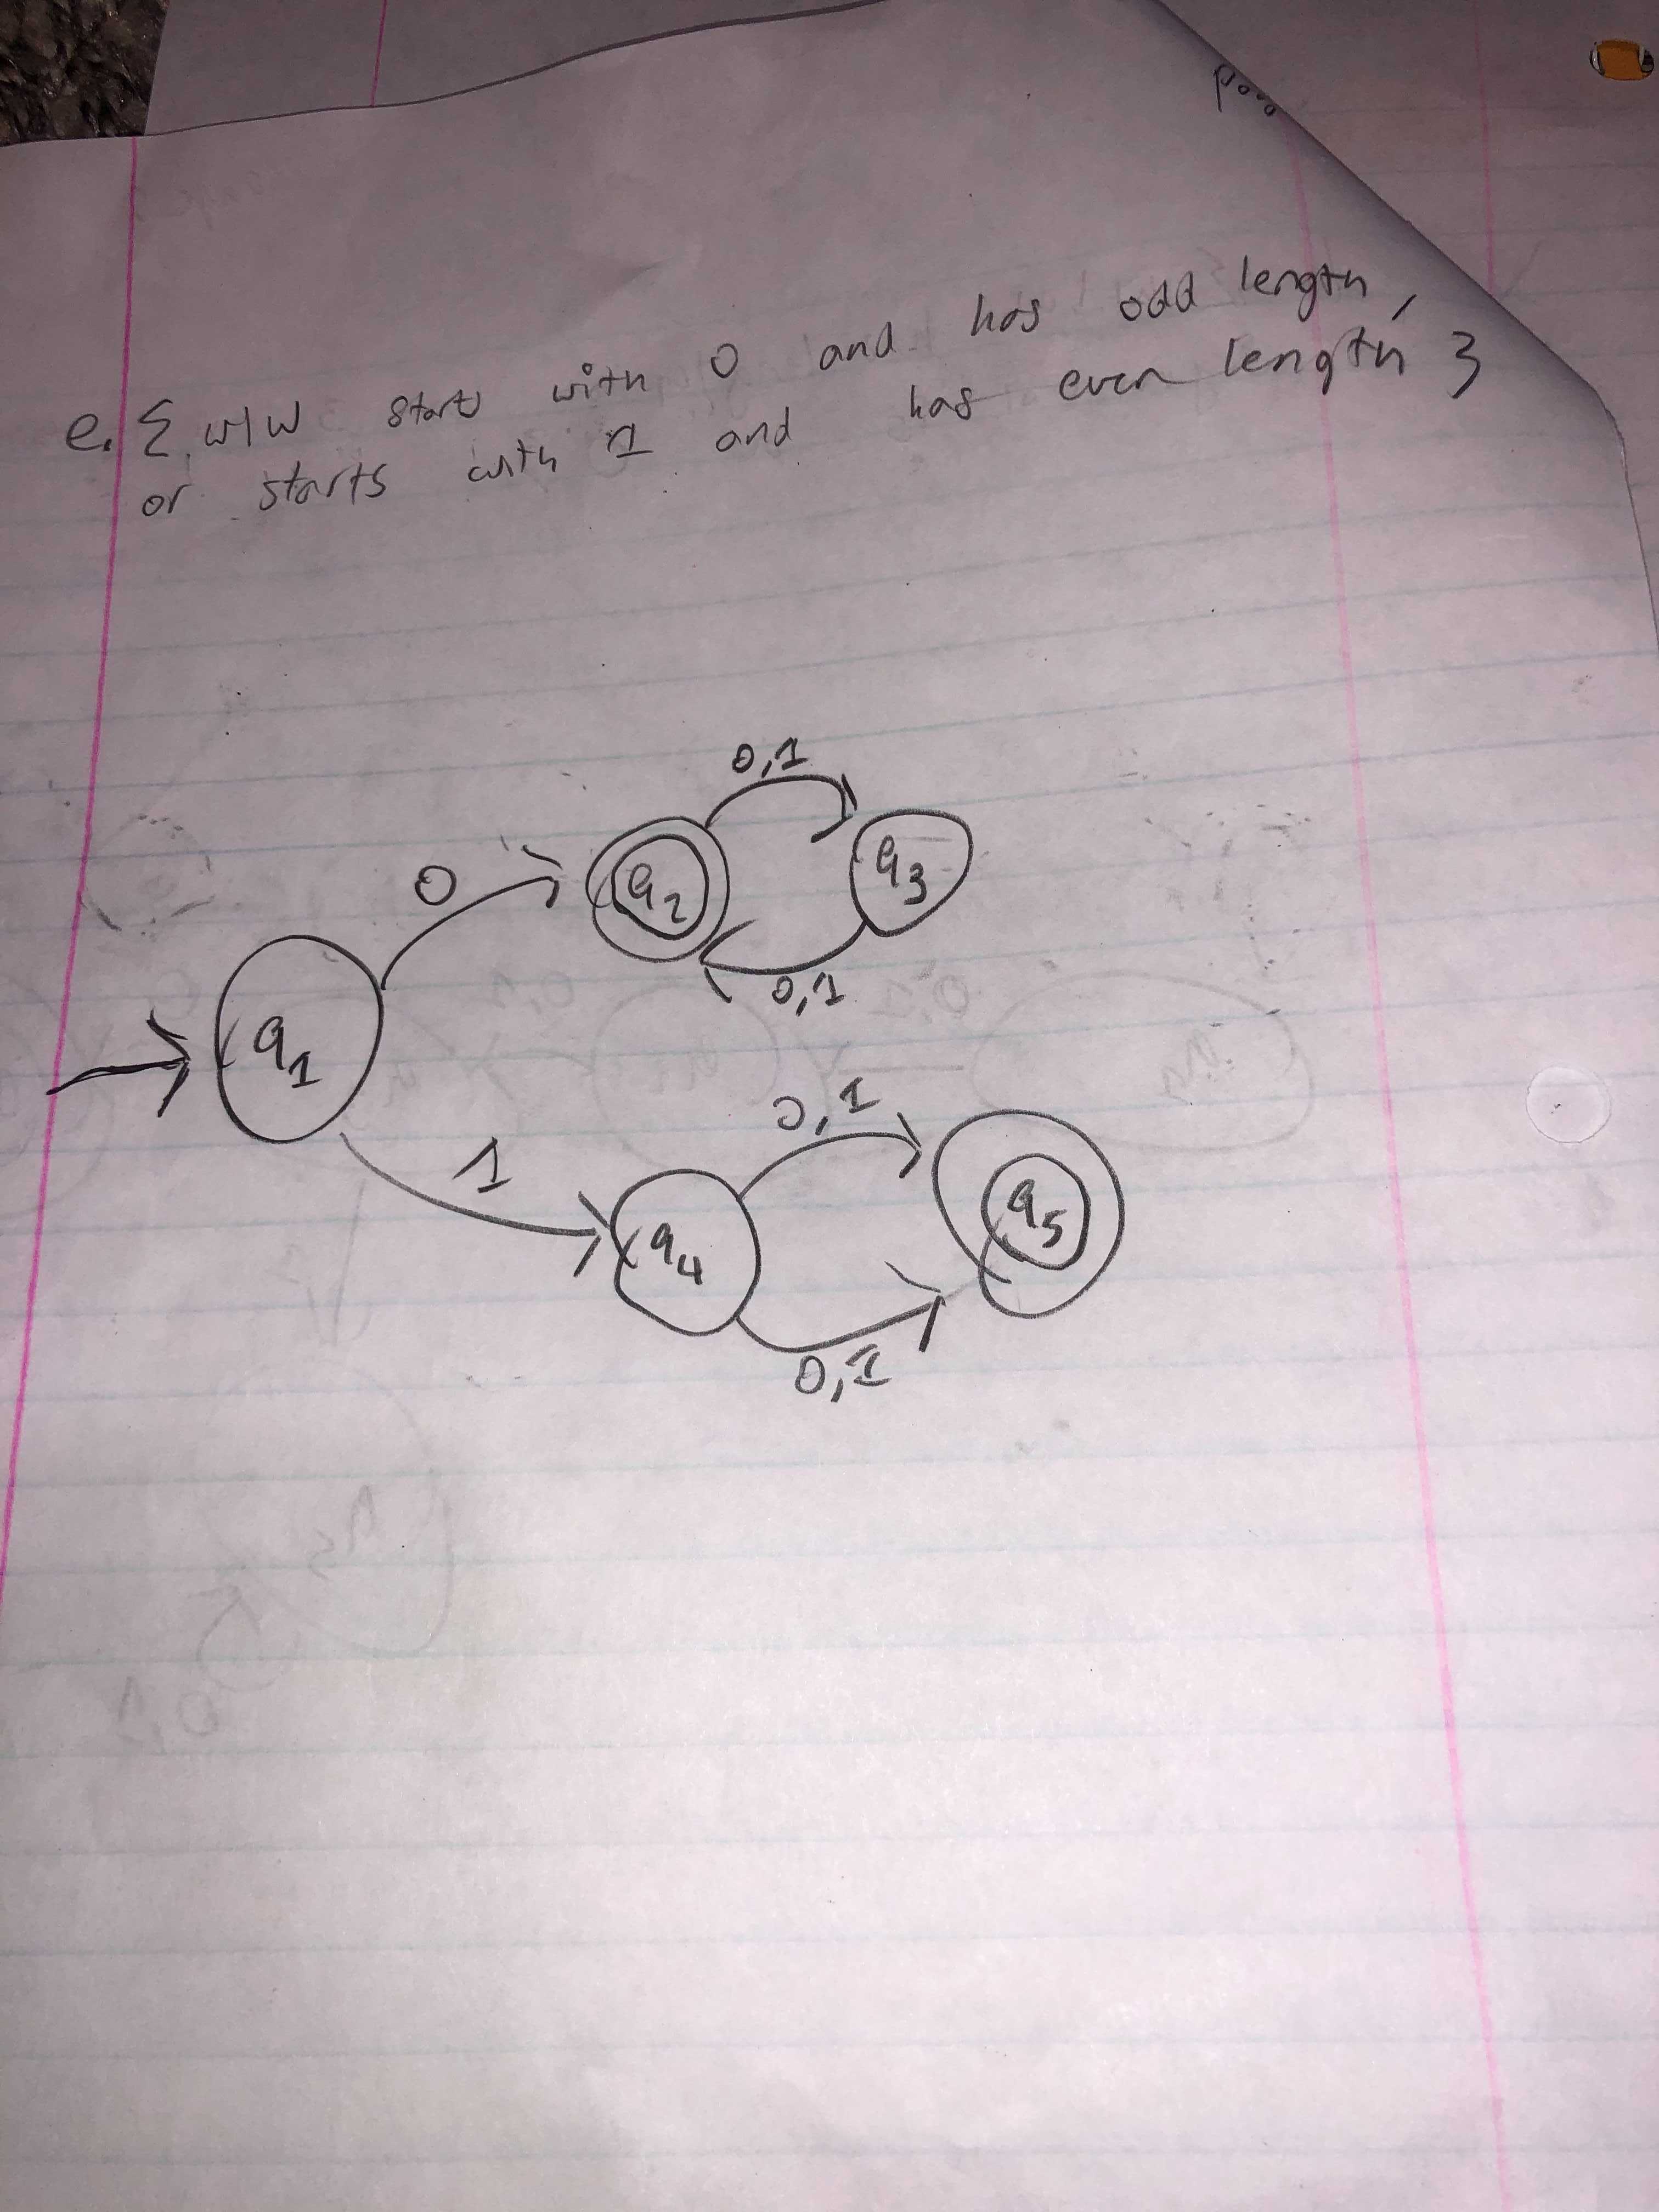 e. { w|w starts with 0 and has odd length,
or starts with 1 and has even length }
0,1
0
q2
q3
0,1
q1
0,1
1
q4
q5
0,1